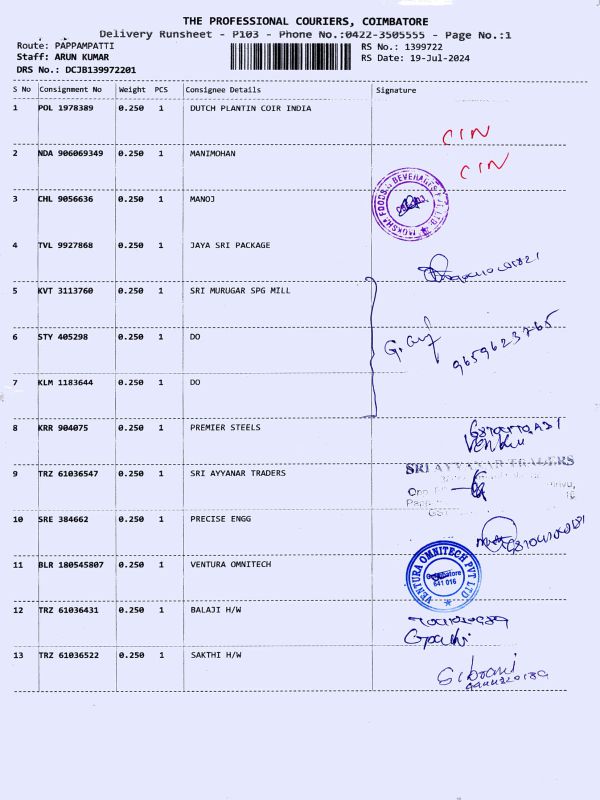 THE PROFESSIONAL COURIERS, COIMBATORE
Delivery Runsheet - P103 - Phone No.:0422-3505555 - Page No.:1
Route: PAPPAMPATTI
RS No.: 1399722
Staff: ARUN KUMAR
RS Date: 19-Jul-2024
DRS No.: DCJB139972201
S No Consignment No Weight PCS Consignee Details Signature
1 POL 1978389 0.250 1 DUTCH PLANTIN COIR INDIA
CIN
2 NDA 906069349 0.250 1 MANIMOHAN
CIN
3 CHL 9056636 0.250 1 MANOJ
MOKSHA FOODS & BEVERAGES PVT LTD
4 TVL 9927868 0.250 1 JAYA SRI PACKAGE
5 KVT 3113760 0.250 1 SRI MURUGAR SPG MILL
6 STY 405298 0.250 1 DO
9659623765
7 KLM 1183644 0.250 1 DO
8 KRR 904075 0.250 1 PREMIER STEELS
9 TRZ 61036547 0.250 1 SRI AYYANAR TRADERS
SRI AYYANAR TRADERS
10 SRE 384662 0.250 1 PRECISE ENGG
11 BLR 180545807 0.250 1 VENTURA OMNITECH
VENTURA OMNITECH PVT LTD
Coimbatore
641 016
12 TRZ 61036431 0.250 1 BALAJI H/W
13 TRZ 61036522 0.250 1 SAKTHI H/W